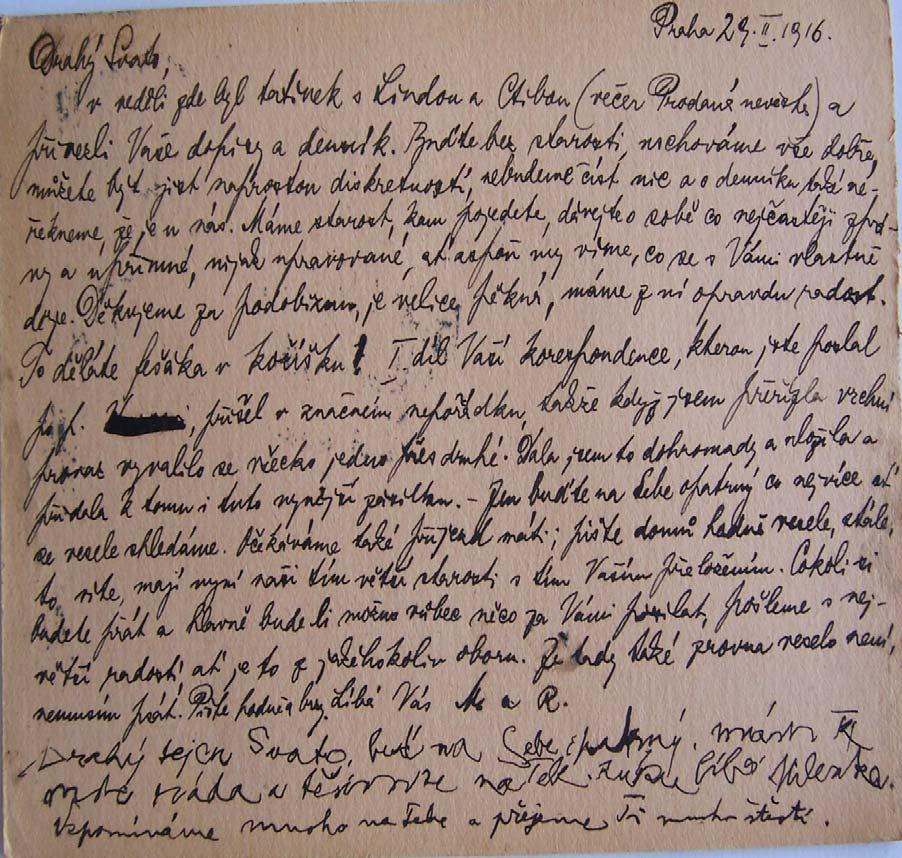 Praha 29. II. 1916.
Drahý Svato,
v neděli zde byl tatínek s Lindou a Ctibon (večer Prodaná nevěsta) a
přivezli Vaše dopisy a denník. Buďte bez starosti, uschováme vše dobře,
můžete být jist naprostou diskretností, nebudeme číst nic a o denníku také ne-
řekneme, že je u nás. Máme starost, kam pojedete, dávejte o sobě co nejčastěji zprá-
vy a upřímné, nijak upravované, ať aspoň my víme, co se s Vámi vlastně
děje. Děkujeme za podobiznu, je velice pěkná, máme z ní opravdu radost.
To děláte fešáka v kožíšku! I. díl Vaší korespondence, kterou jste poslal
po p. , přišel v značném nepořádku, takže když jsem přeřízla vrchní
provaz vyvalilo se všecko jedno přes druhé. Dala jsem to dohromady a složila a
přidala k tomu i tuto nynější zásilku. – Jen buďte na sebe opatrný co nejvíce ať
se vesele shledáme. Očekáváme také příjezd máti; pište domů hodně vesele, stále,
to víte, mají nyní naši tím větší starosti s tím Vaším přeložením. Cokoli si
budete přát a hlavně bude-li možno vůbec něco za Vámi posílat, pošleme s nej-
větší radostí, ať je to z jakéhokoliv oboru. Že tady také zrovna veselo není,
nemusím psát. Pište hodně a brzy. Líbá Vás M. a R.
Drahý Svato, buď na Sebe opatrný,
ráda a na Tebe líbá
Vzpomínáme mnoho na Tebe a přejeme Ti mnoho štěstí.